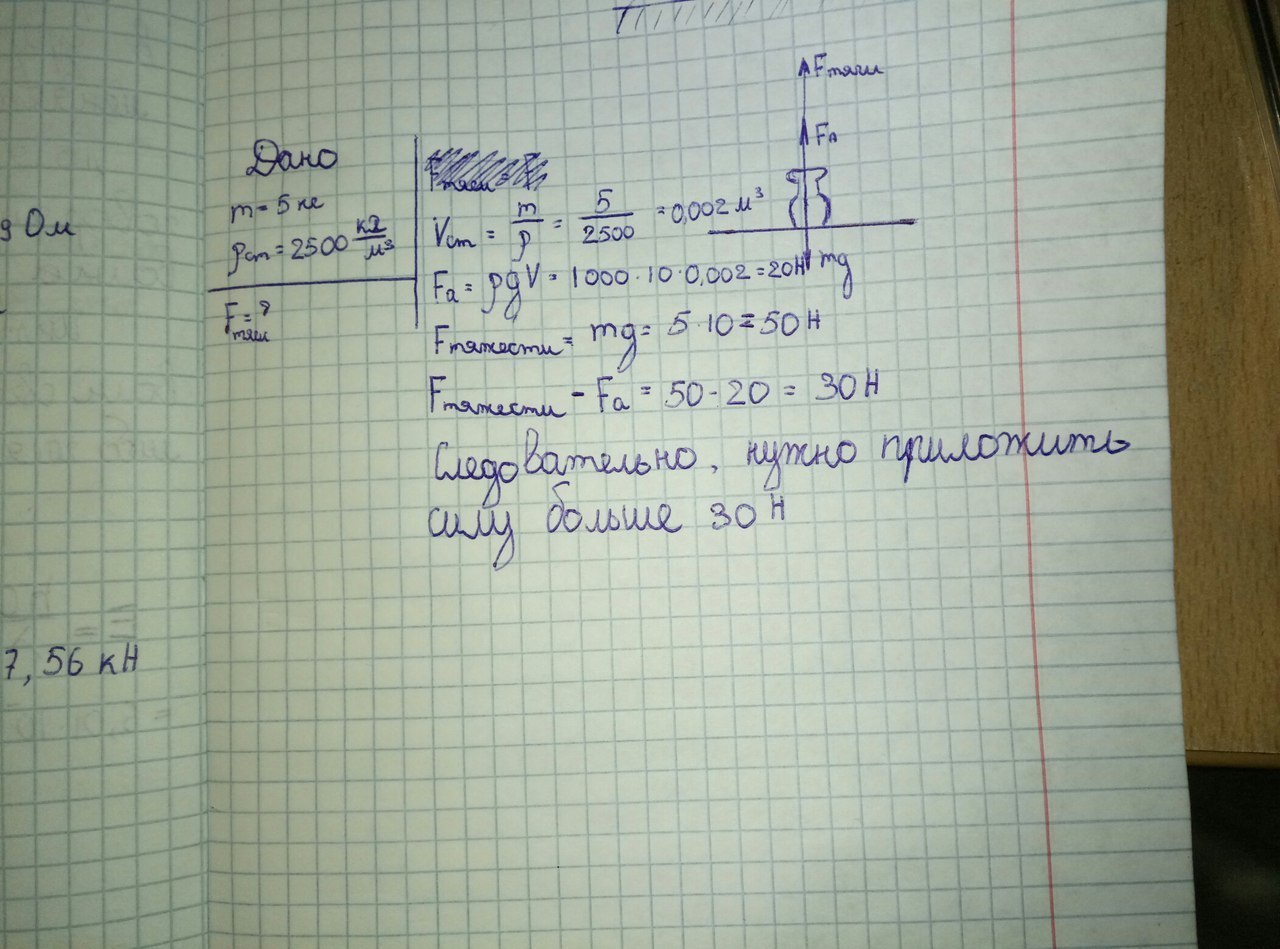 Дано
m = 5 кг
ρст = 2500 кг/м³
Fтяги = ?
Vст = m/ρ = 5/2500 = 0,002 м³
Fа = ρgV = 1000 · 10 · 0,002 = 20Н
Fтяжести = mg = 5 · 10 = 50 Н
Fтяжести - Fа = 50 - 20 = 30 Н
Следовательно, нужно приложить
силу больше 30 Н
Fтяги
Fа
mg
Ом
7,56 кН